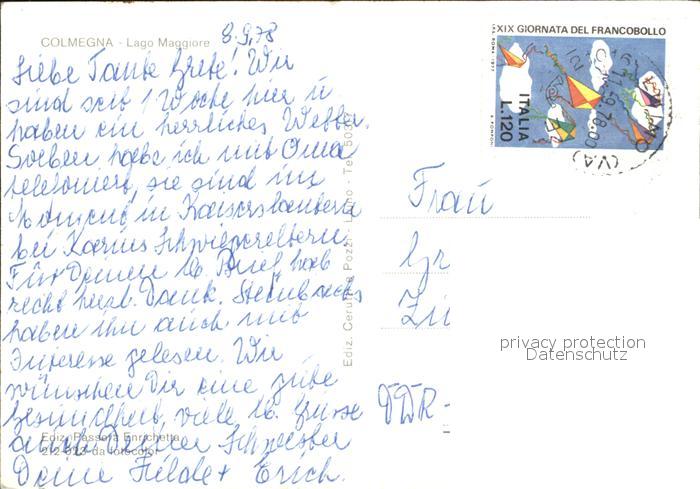 COLMEGNA - Lago Maggiore
8.9.78
Liebe Tante Grete! Wir
sind seit 1 Woche hier u
haben ein herrliches Wetter.
Soeben habe ich mit Oma
telefoniert, sie sind im
Moment in Kaiserslautern
bei Karins Schwiegereltern.
Für Deinen lb. Brief hab
recht herzl. Dank. Steinbachs
haben ihn auch mit
Interesse gelesen. Wir
wünschen Dir eine gute
Gesundheit, viele lb. Grüsse
auch Deiner Schwester
Deine Hilde + Erich.
Ediz. Passera Enrichetta
212 923 da fotocolor
Ediz. Cerutti Pozzi - Luino - Tel.
XIX GIORNATA DEL FRANCOBOLLO
I.P.S. ROMA 1977
ITALIA
L.120
(VA)
Frau
Gr
DDR-
privacy protection
Datenschutz